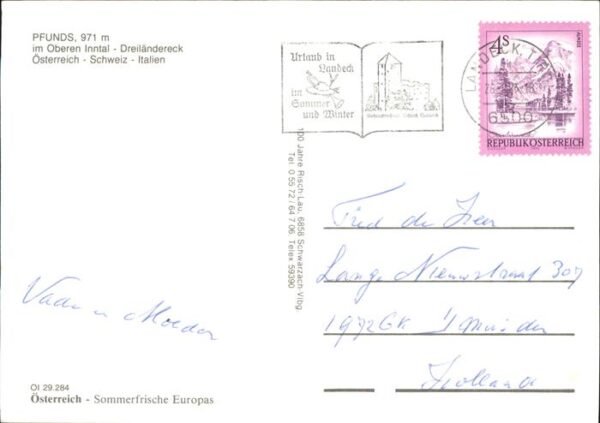 PFUNDS, 971 m
im Oberen Inntal - Dreiländereck
Österreich - Schweiz - Italien
Urlaub in
Landeck
im
Sommer
und Winter
LANDECK, TIROL
6500
4s
ALMSEE
REPUBLIK ÖSTERREICH
100 Jahre Risch-Lau, 6858 Schwarzach-Vlbg.
Tel. 0 55 72 / 64 7 06, Telex 59390
Fred de Heer
Lange Nieuwstraat 307
1972GK IJmuiden
Holland
Vader en Moeder
OI 29.284
Österreich - Sommerfrische Europas